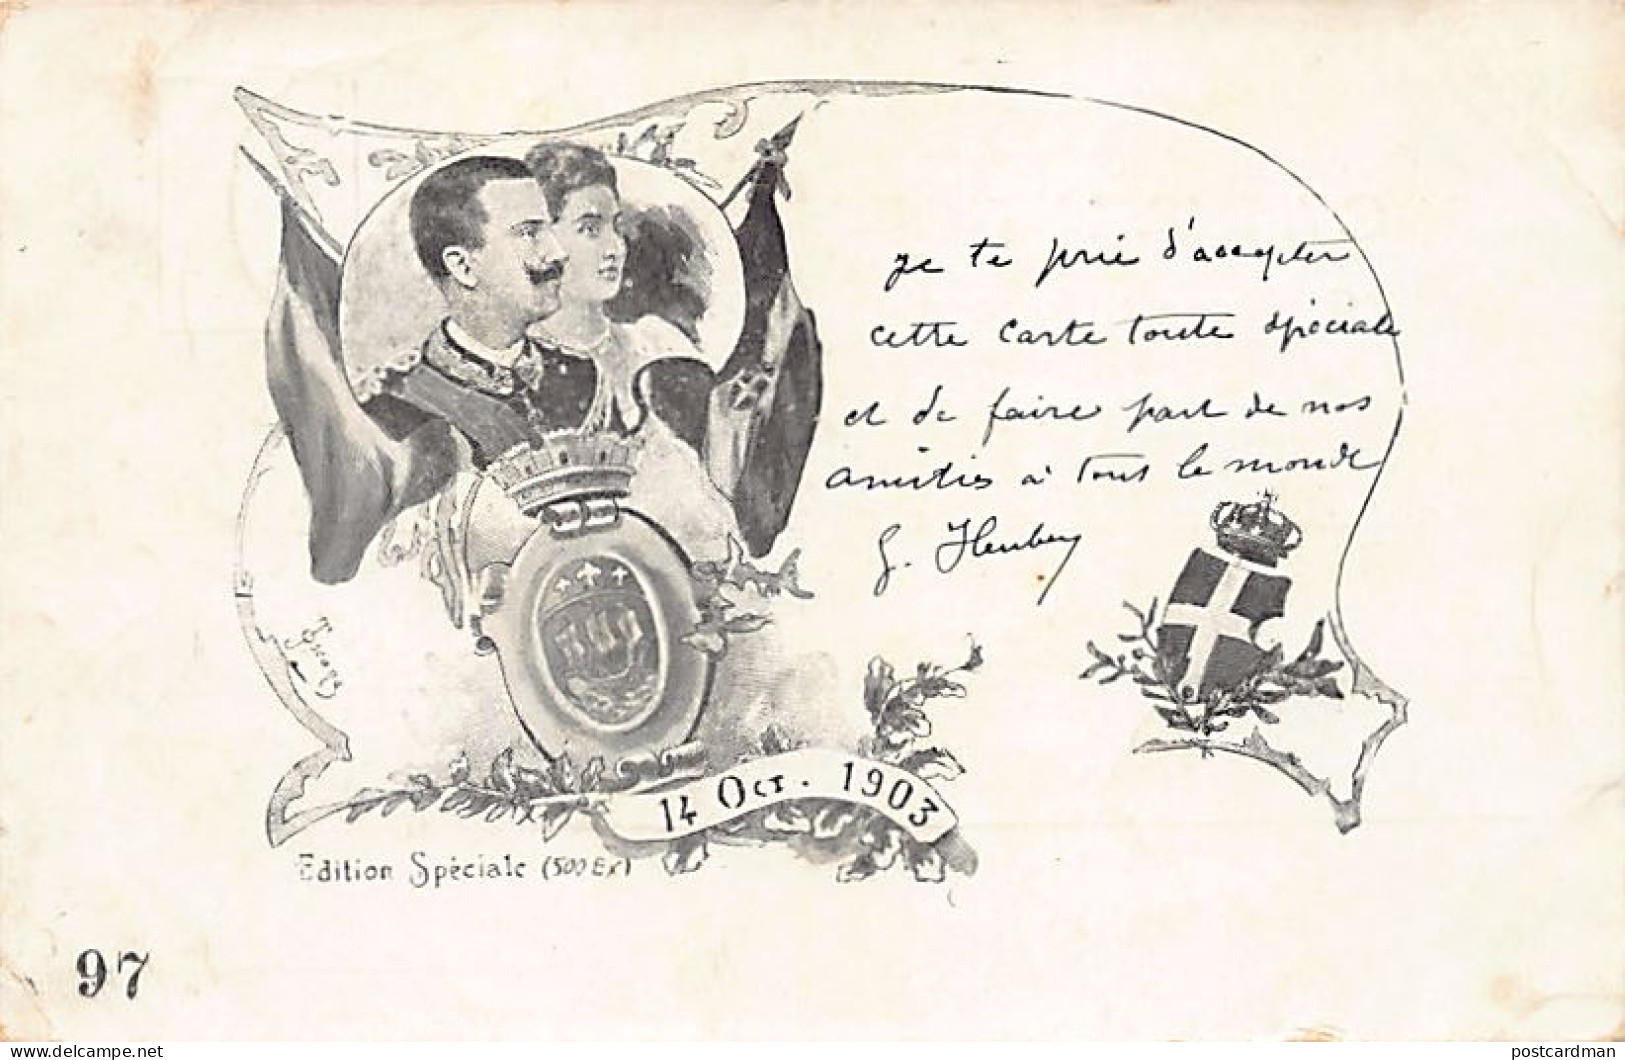 je te prie d'accepter
cette carte toute spéciale
et de faire part de nos
amitiés à tout le monde
14 Oct. 1903
Edition Spéciale (500 Ex)
97
postcardman